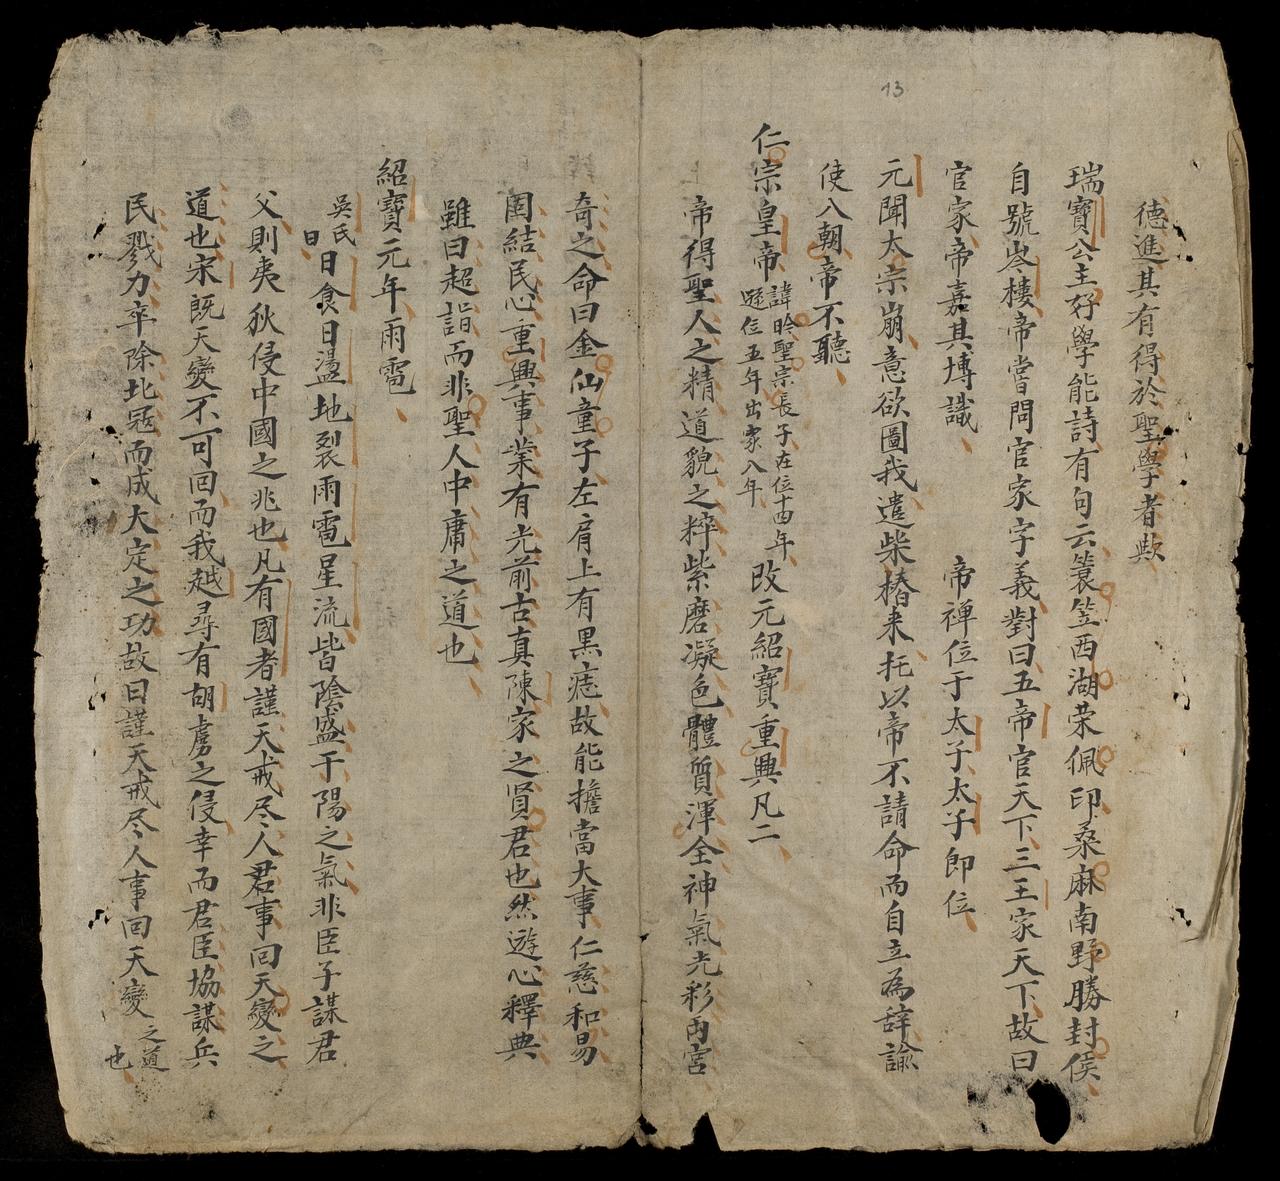 13
德進其有得於聖學者歟
瑞寶公主好學能詩有句云蓑笠西湖荣佩印桑麻南野勝封侯
自號岑樓帝嘗問官家字義對曰五帝官天下三王家天下故曰
官家帝嘉其博識 帝禅位于太子太子即位
元聞太宗崩意欲圖我遣柴椿来托以帝不請命而自立為辞諭
使入朝帝不聽
仁宗皇帝 諱昑聖宗長子在位十四年 遜位五年出家八年 改元紹寶重興凡二
帝得聖人之精道貌之粹紫磨凝色體質渾全神氣光彩両宮
奇之命曰金仙童子左肩上有黒痣故能擔當大事仁慈和易
固結民心重興事業有光前古真陳家之賢君也然遊心釋典
雖曰超詣而非聖人中庸之道也
紹寶元年雨雹
吴氏曰日食日盪地裂雨雹星流皆陰盛于陽之氣非臣子謀君
父則夷狄侵中國之兆也凡有國者謹天戒尽人君事回天變之
道也宋既天變不可回而我越尋有胡虜之侵幸而君臣協謀兵
民戮力卒除北冦而成大定之功故曰謹天戒尽人事回天變之道也